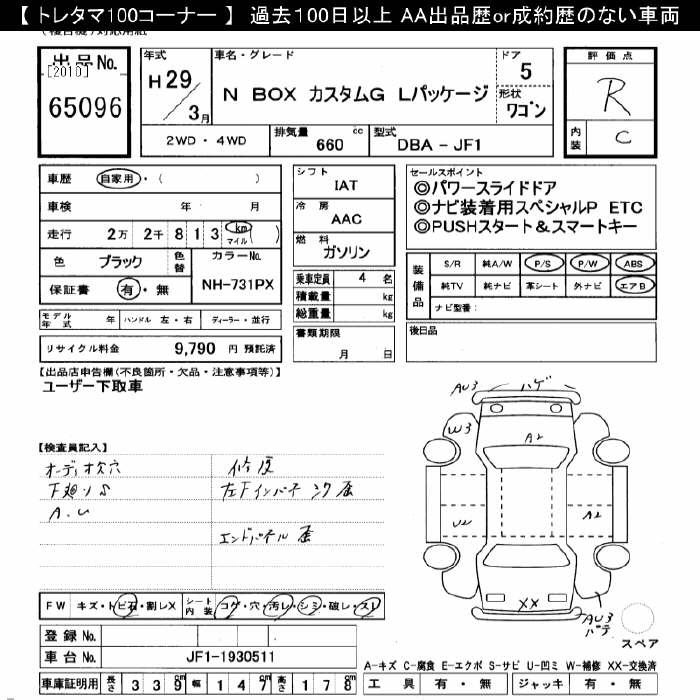 【 トレタマ100コーナー 】 過去100日以上 AA出品歴or成約歴のない車両
出品No.
[2010]
65096
年式
H 29
3月
車名・グレード
N BOX カスタムG Lパッケージ
ドア
5
形状
ワゴン
2WD・4WD
排気量
660 cc
型式
DBA - JF1
評価点
R
内装
C
車歴 自家用・( )
車検 年 月
走行 2万 2千 8 1 3 km マイル ( )
色 ブラック 色替 カラーNo.
NH-731PX
保証書 有・無
モデル年式 年 ハンドル 左・右 ディーラー・並行
リサイクル料金 9,790 円 預託済
シフト
IAT
冷房
AAC
燃料
ガソリン
乗車定員 4 名
積載量 kg
総重量 kg
書類期限
月 日
セールスポイント
◎パワースライドドア
◎ナビ装着用スペシャルP ETC
◎PUSHスタート&スマートキー
装備品
S/R 純A/W P/S P/W ABS
純TV 純ナビ 革シート 外ナビ エアB
ナビ型番:
後日品
【出品店申告欄(不良箇所・欠品・注意事項等)】
ユーザー下取車
【検査員記入】
オーディオ欠穴
下廻りS
A.U
修復
左Fインパネ ング歪
エンドパネル 歪
AU3
ハゲ
W3
A2
U2
A2
XX
AU3
ハゲ
スペア
FW キズ・トビ石・割レX シート内装 コゲ・穴・汚レ・シミ・破レ・スレ
登録No.
車台No. JF1-1930511
車庫証明用 長さ 3 3 9 cm 幅 1 4 7 cm 高さ 1 7 8 cm
A-キズ C-腐食 E-エクボ S-サビ U-凹ミ W-補修 XX-交換済
工具 有・無 ジャッキ 有・無